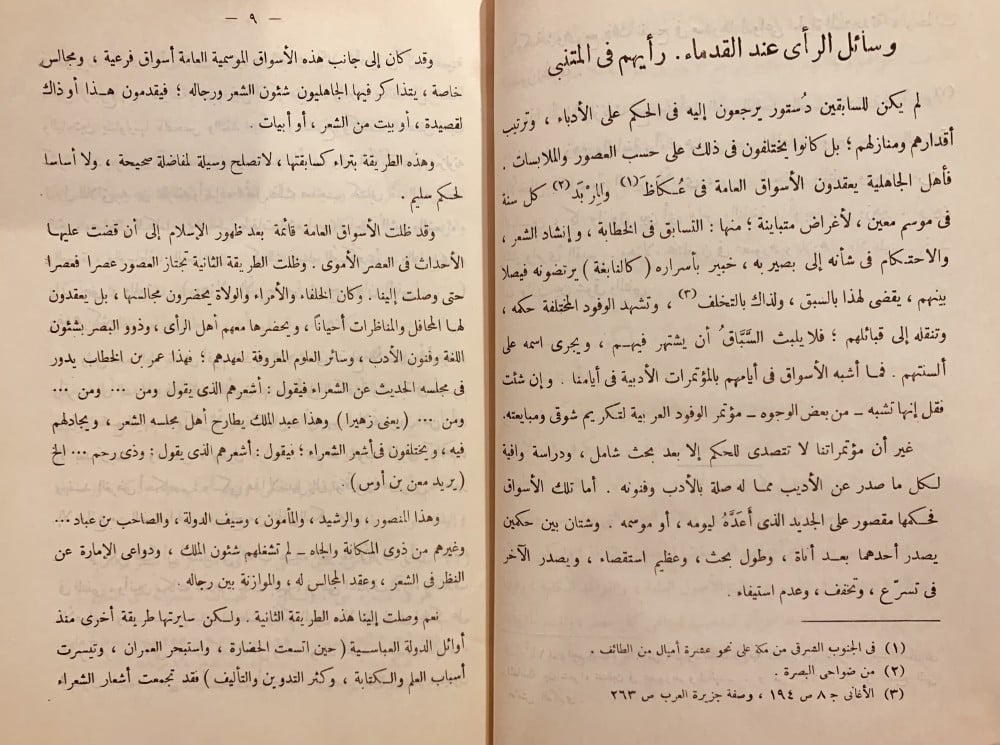 وسائل الرأى عند القدماء. رأيهم فى المتنبى
لم يكن للسابقين دُستور يرجعون إليه فى الحكم على الأدباء ، وترتيب
أقدارهم ومنازلهم ؛ بل كانوا يختلفون فى ذلك على حسب العصور والملابسات .
فأهل الجاهلية يعقدون الأسواق العامة فى عُكَاظَ (١) والمِرْبَد (٢) كل سنة
فى موسم معين ، لأغراض متباينة ؛ منها : التسابق فى الخطابة ، وإنشاد الشعر ،
والاحتكام فى شأنه إلى بصير به ، خبير بأسراره ( كالنابغة ) يرتضونه فيصلا
بينهم ، يقضى لهذا بالسبق ، ولذاك بالتخلف (٣) ، وتشهد الوفود المختلفة حكمه ،
وتنقله إلى قبائلهم ؛ فلا يلبث السَّبَّاقُ أن يشتهر فيهم ، ويجرى اسمه على
ألسنتهم . فما أشبه الأسواق فى أيامهم بالمؤتمرات الأدبية فى أيامنا . وإن شئت
فقل إنها تشبه – من بعض الوجوه – مؤتمر الوفود العربية لتكريم شوقى ومبايعته.
غير أن مؤتمراتنا لا تتصدى للحكم إلا بعد بحث شامل ، ودراسة وافية
لكل ما صدر عن الأديب مما له صلة بالأدب وفنونه . أما تلك الأسواق
فحكمها مقصور على الجديد الذى أعَدَّهُ ليومه ، أو موسمه . وشتان بين حكمين
يصدر أحدهما بعد أناة ، وطول بحث ، وعظيم استقصاء ، ويصدر الآخر
فى تسرّع ، وتخفف ، وعدم استيفاء .
(١) فى الجنوب الشرقى من مكة على نحو عشرة أميال من الطائف .
(٢) من ضواحى البصرة .
(٣) الأغانى جـ ٨ ص ١٩٤ ، وصفة جزيرة العرب ص ٢٦٣
– ٩ –
وقد كان إلى جانب هذه الأسواق الموسمية العامة أسواق فرعية ، ومجالس
خاصة ، يتذاكر فيها الجاهليون شئون الشعر ورجاله ؛ فيقدمون هذا أو ذاك
لقصيدة ، أو بيت من الشعر ، أو أبيات .
وهذه الطريقة بتراء كسابقتها ، لا تصلح وسيلة لمفاضلة صحيحة ، ولا أساسا
لحكم سليم .
وقد ظلت الأسواق العامة قائمة بعد ظهور الإسلام إلى أن قضت عليها
الأحداث فى العصر الأموى . وظلت الطريقة الثانية تجتاز العصور عصرا فعصرا
حتى وصلت إلينا . وكان الخلفاء والأمراء والولاة يحضرون مجالسها ، بل يعقدون
لها المحافل والمناظرات أحيانًا ، ويحضرها معهم أهل الرأى ، وذوو البصر بشئون
اللغة وفنون الأدب ، وسائر العلوم المعروفة لعهدهم ؛ فهذا عمر بن الخطاب يدور
فى مجلسه الحديث عن الشعراء فيقول : أشعرهم الذى يقول ومن ... ومن ...
ومن ... ( يعنى زهيرا ) وهذا عبد الملك يطارح أهل مجلسه الشعر ، ويجادلهم
فيه ، ويختلفون فى أشعر الشعراء ؛ فيقول : أشعرهم الذى يقول : وذى رحم ... الخ
( يريد معن بن أوس )
وهذا المنصور ، والرشيد ، والمأمون ، وسيف الدولة ، والصاحب بن عباد ...
وغيرهم من ذوى المكانة والجاه – لم تشغلهم شئون الملك ، ودواعى الإمارة عن
النظر فى الشعر ، وعقد المجالس له ، والموازنة بين رجاله .
نعم وصلت إلينا هذه الطريقة الثانية . ولكن سايرتها طريقة أخرى منذ
أوائل الدولة العباسية ( حين اتسعت الحضارة ، واستبحر العمران ، وتيسرت
أسباب العلم والكتابة ، وكثر التدوين والتأليف ) فقد تجمعت أشعار الشعراء